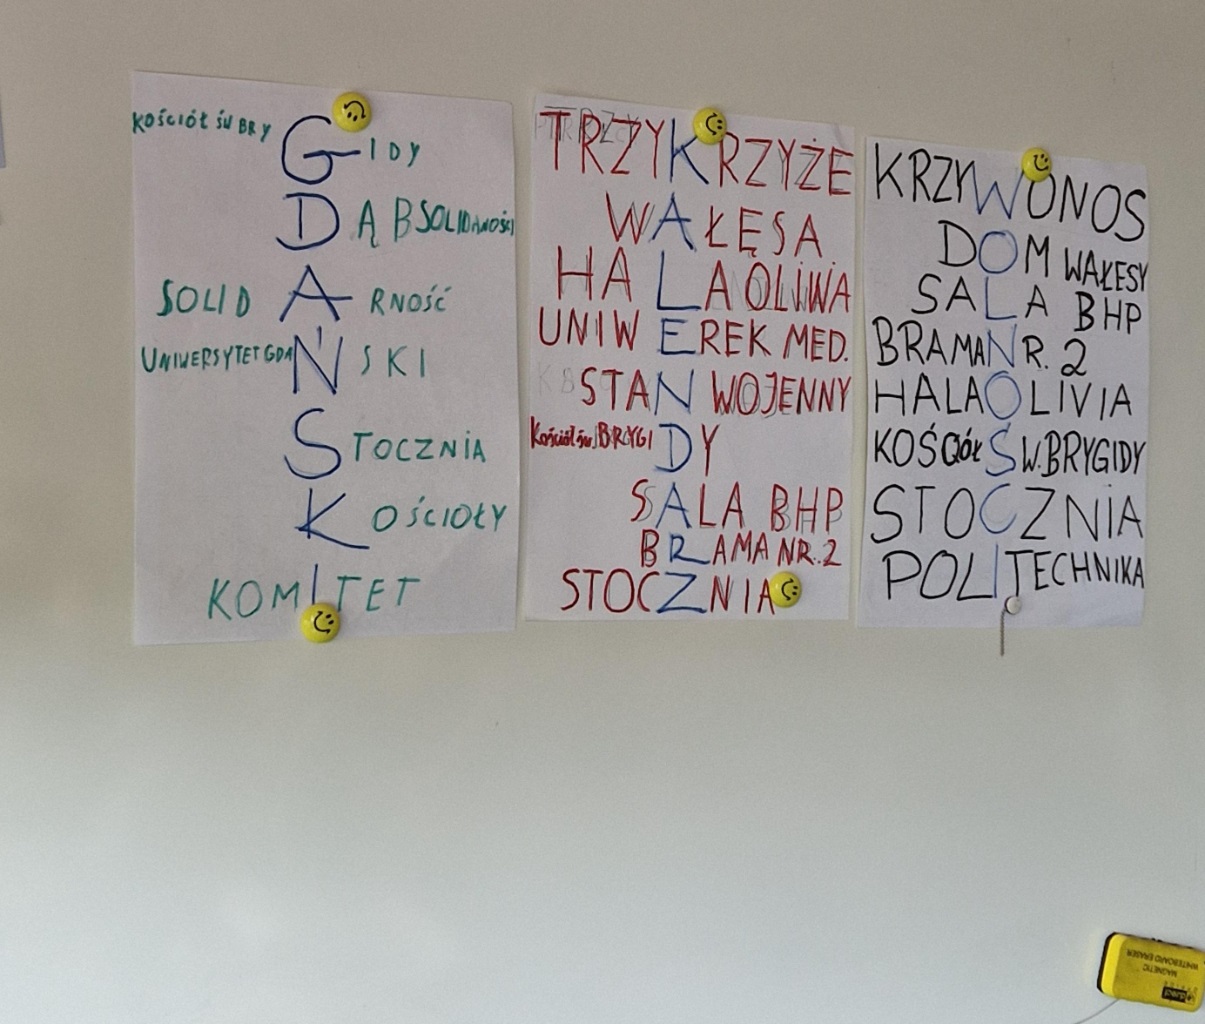 KOŚCIÓŁ ŚW BRYGIDY
DĄB SOLIDARNOŚCI
SOLIDARNOŚĆ
UNIWERSYTET GDAŃSKI
STOCZNIA
KOŚCIOŁY
KOMITET
TRZY KRZYŻE
WAŁĘSA
HALA OLIWA
UNIWEREK MED.
STAN WOJENNY
Kościół św. BRYGIDY
SALA BHP
BRAMA NR. 2
STOCZNIA
KRZYWONOS
DOM WAŁESY
SALA BHP
BRAMA NR. 2
HALA OLIVIA
KOŚCIÓŁ ŚW. BRYGIDY
STOCZNIA
POLITECHNIKA
MAGNETIC
WHITEBOARD ERASER